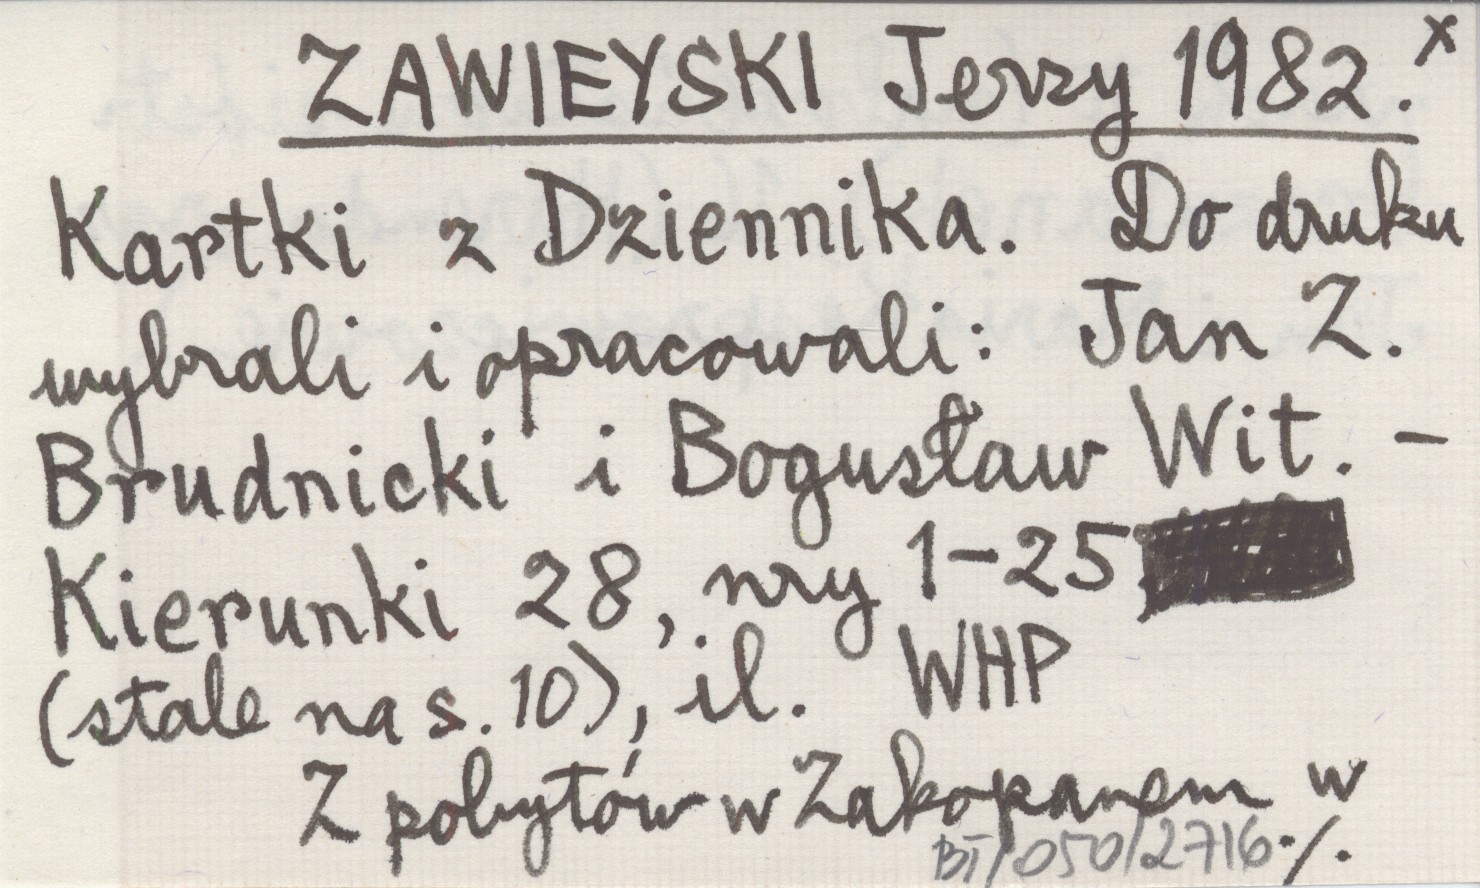 ZAWIEYSKI Jerzy 1982. x
Kartki z Dziennika. Do druku
wybrali i opracowali: Jan Z.
Brudnicki i Bogusław Wit. –
Kierunki 28, nry 1–25
(stale na s. 10), il. WHP
Z pobytów w Zakopanem w
BT/050/2716 ./.